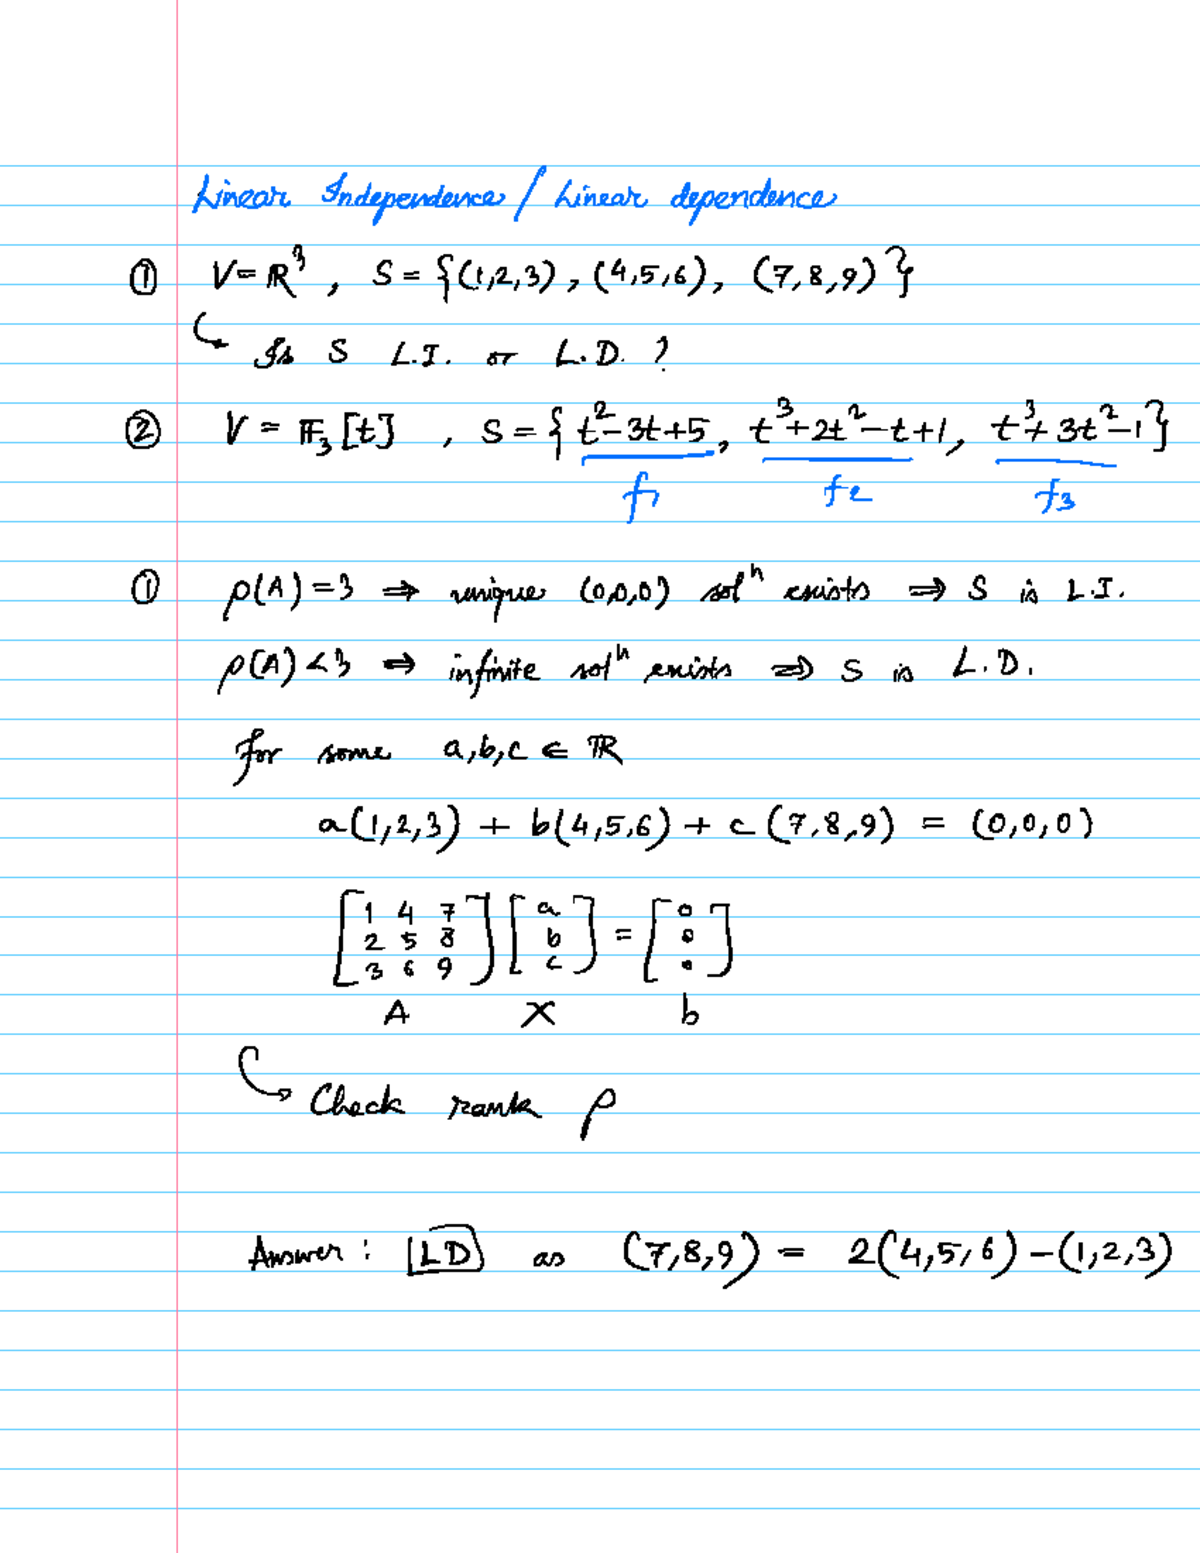 Linear Independence / Linear dependence
① V = ℝ³ , S = {(1,2,3), (4,5,6), (7,8,9)}
↳ Is S L.I. or L.D. ?
② V = 𝔽₃[t] , S = {t²-3t+5, t³+2t²-t+1, t³+3t²-1}
f₁ f₂ f₃
① ρ(A) = 3 ⇒ unique (0,0,0) solⁿ exists ⇒ S is L.I.
ρ(A) < 3 ⇒ infinite solⁿ exists ⇒ S is L.D.
for some a,b,c ∈ ℝ
a(1,2,3) + b(4,5,6) + c(7,8,9) = (0,0,0)
[1 4 7] [a] = [0]
[2 5 8] [b] [0]
[3 6 9] [c] [0]
A X b
↳ Check rank ρ
Answer : LD as (7,8,9) = 2(4,5,6) - (1,2,3)